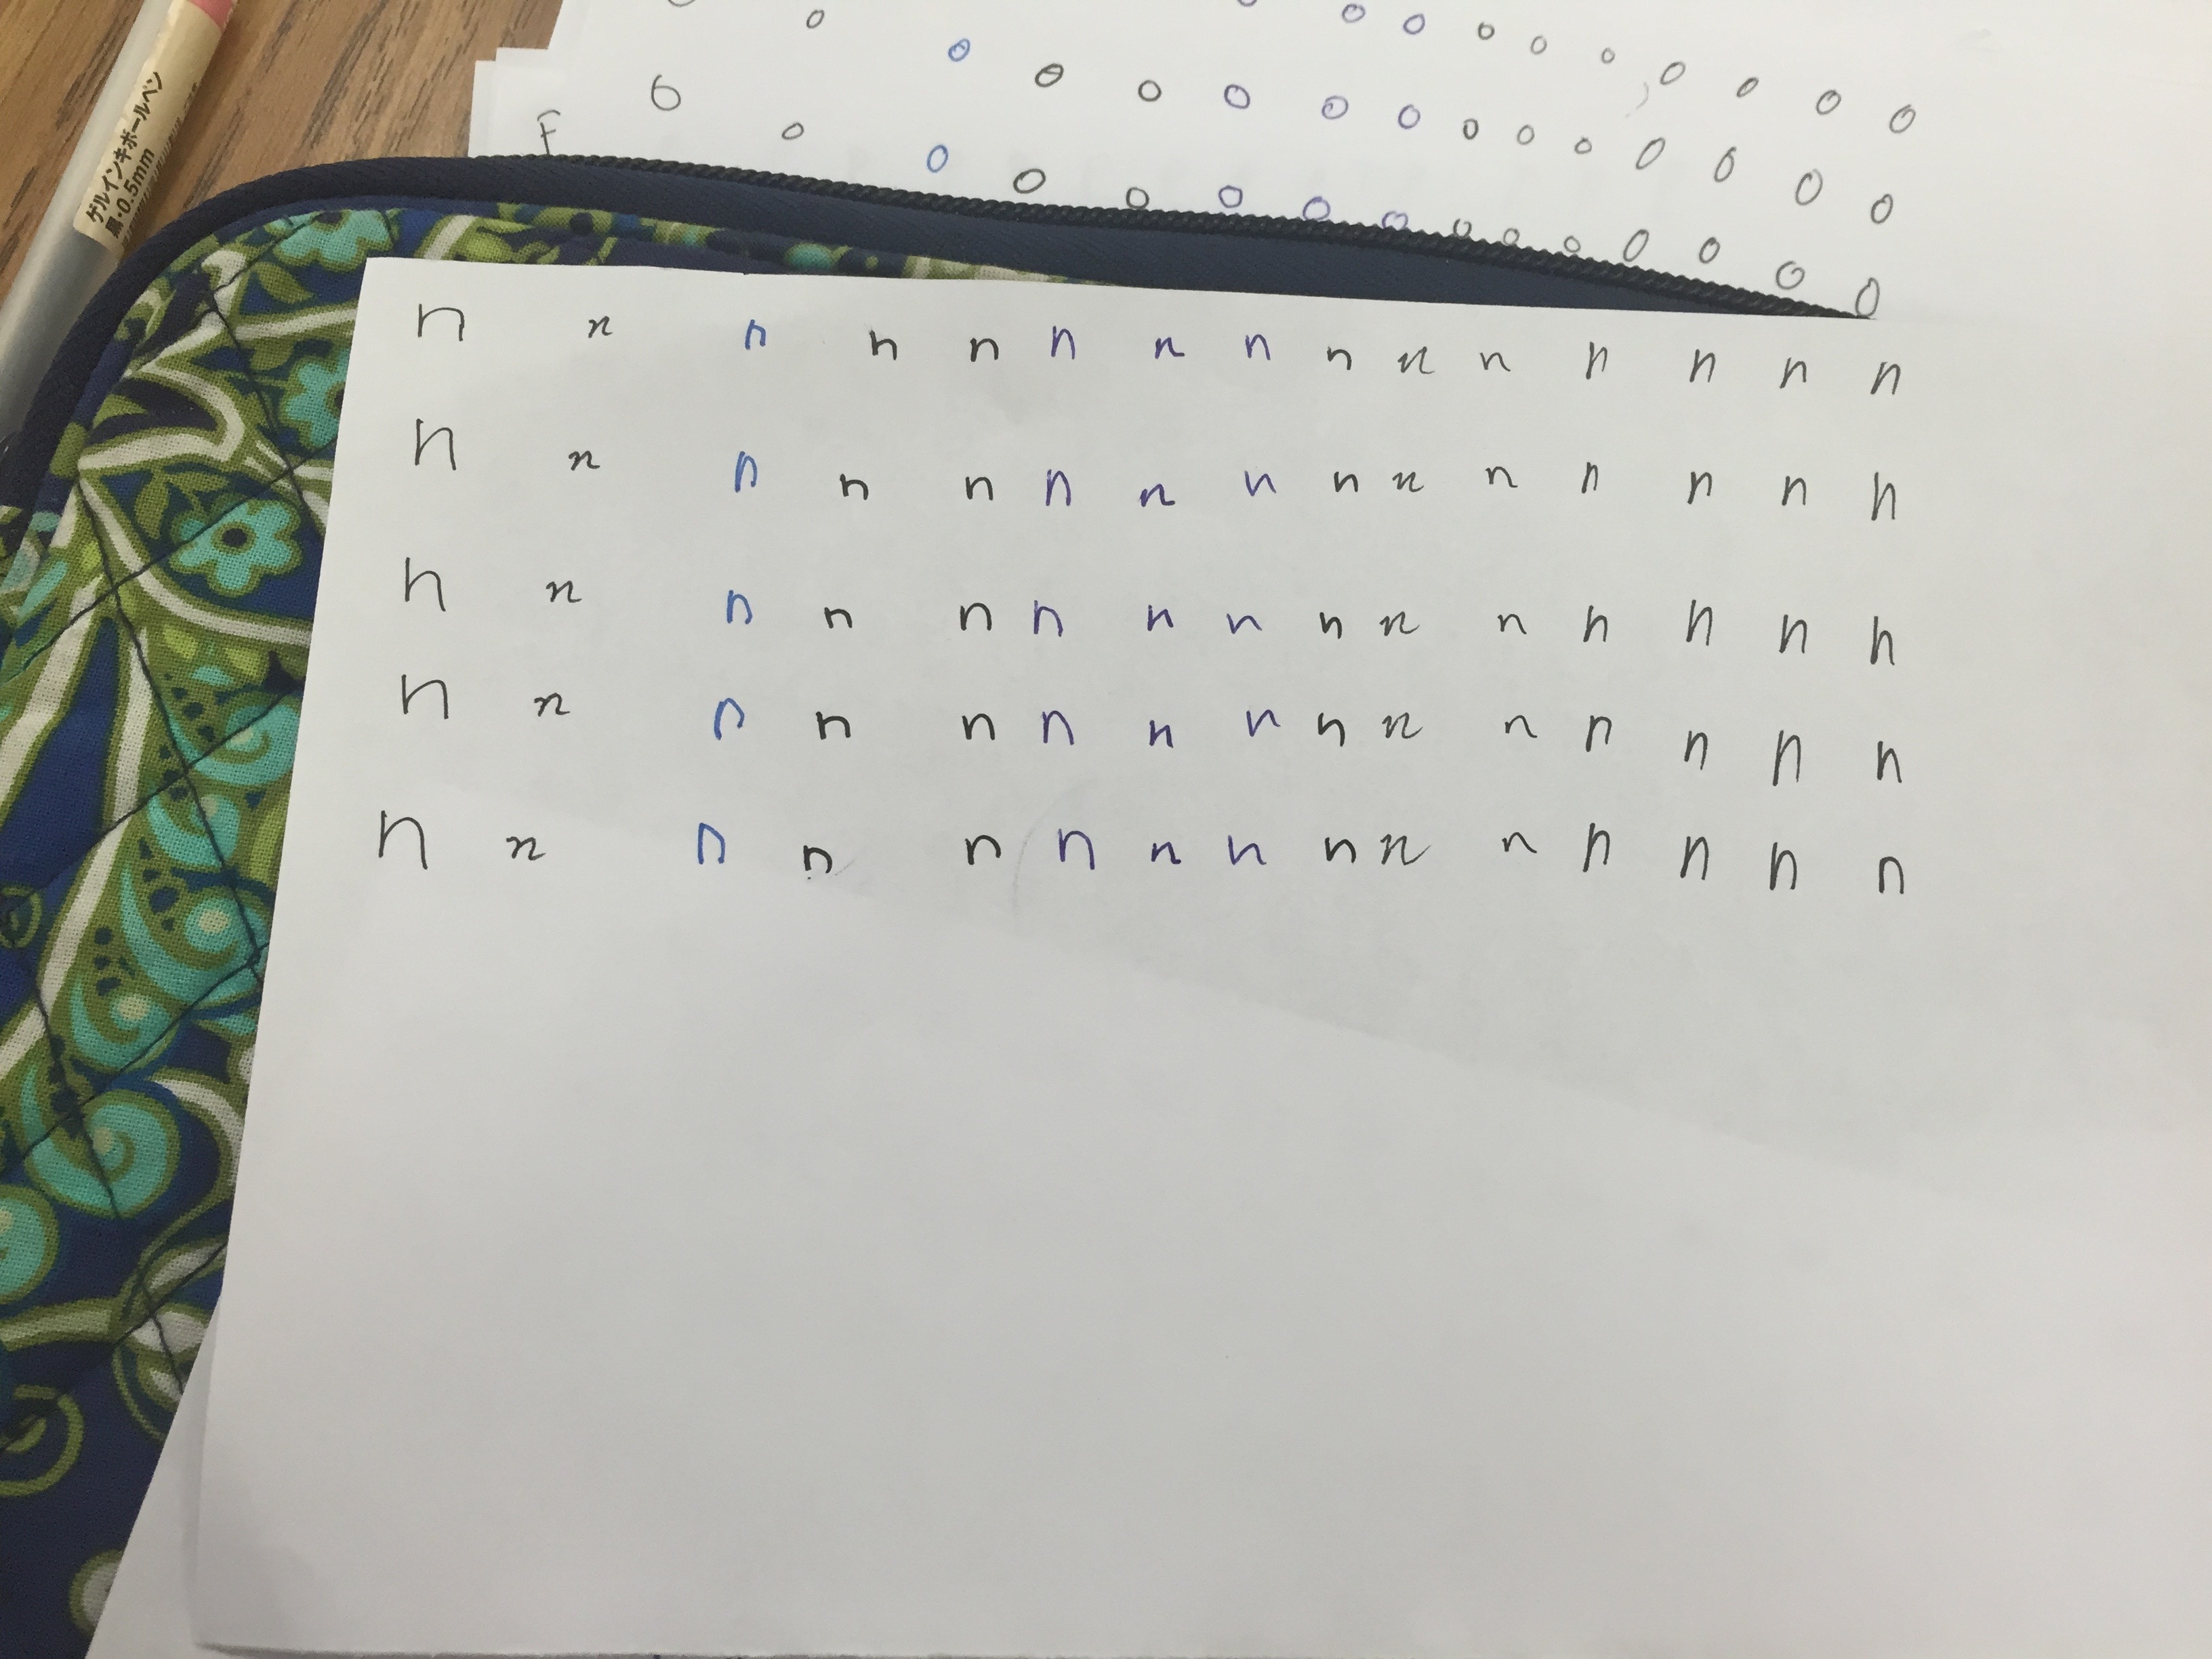 ゲルインキボールペン
黒・0.5mm
o o o o o o o o o o
o o o o o o o o o o o o o o o
F o o o o o o o o o o o o o o
n n n n n n n n n n n n n n n
n n n n n n n n n n n n n n n
n n n n n n n n n n n n n n n
n n n n n n n n n n n n n n n
n n n n n n n n n n n n n n n